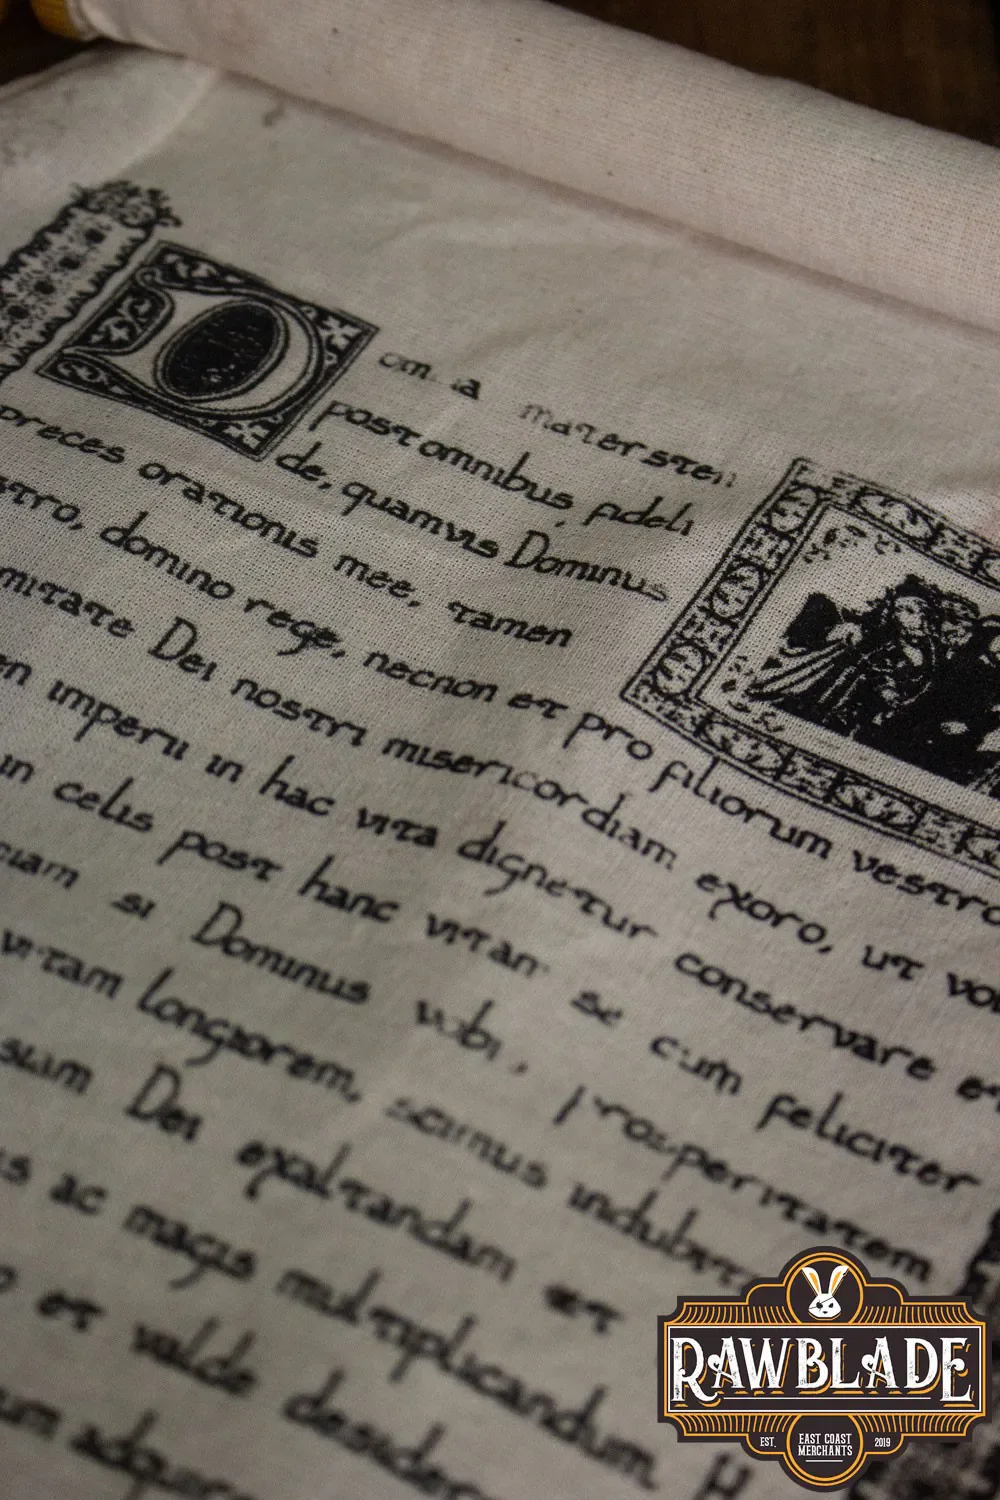 D
mater
post omnibus fideli
de, quamvis Dominus
preces orationis mee, tamen
stro, domino rege, necnon et pro filiorum vestro
mitate Dei nostri misericordiam exoro, ut vo
en imperii in hac vita dignetur conservare et
in celis post hanc vitam se cum feliciter
ciam si Dominus vobi, prosperitatem
vitam longiorem, scimus indubit
suam Dei exaltandam et
s ac magis multiplicandum. H
o et valde desider
um
RAWBLADE
EST. EAST COAST MERCHANTS 2019